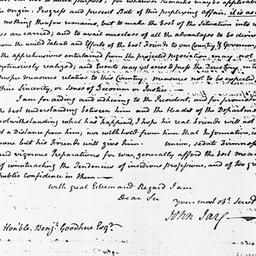 origin, Progress and present State of this perplexing affair, it
nothing therefore remains, but to make the best of the situation into
are carried; and to avail ourselves of all the advantages to be derived
from the united talents and Efforts of the best Friends to our Country & Government
the apprehensions entertained from the projected
measures relative to this Country; measures not to be expected
within Sincerity, or Sense of Decorum or Justice.
I am for aiding and adhering to the President, and for promoting
the best understanding between him and the Heads of the Departments
notwithstanding what has happened, I hope his real Friends will not
at a Distance from him; nor withhold from him that Information,
none but his Friends will give him. union, sedate Firmness
and vigorous Preparations for war, generally afford the best means
of counteracting the Tendencies of insidious professions, and of too great
public Confidence in them—
With great Esteem and Regard I am
Dear Sir
your most ob. Servt
John Jay
Honble. Benjn. Goodhue Esqr.